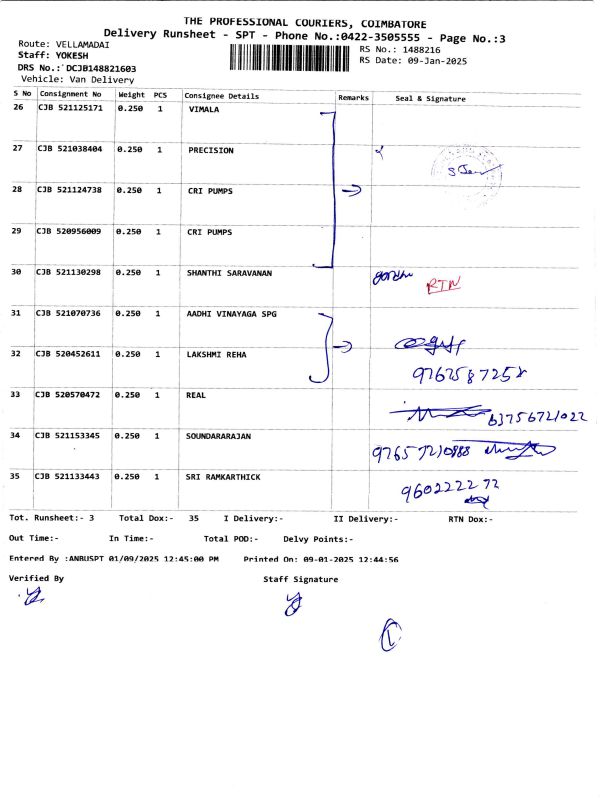 THE PROFESSIONAL COURIERS, COIMBATORE
Delivery Runsheet - SPT - Phone No.:0422-3505555 - Page No.:3
Route: VELLAMADAI
RS No.: 1488216
Staff: YOKESH
RS Date: 09-Jan-2025
DRS No.: DCJB148821603
Vehicle: Van Delivery
S No Consignment No Weight PCS Consignee Details Remarks Seal & Signature
26 CJB 521125171 0.250 1 VIMALA
27 CJB 521038404 0.250 1 PRECISION
28 CJB 521124738 0.250 1 CRI PUMPS
29 CJB 520956009 0.250 1 CRI PUMPS
30 CJB 521130298 0.250 1 SHANTHI SARAVANAN
RTN
31 CJB 521070736 0.250 1 AADHI VINAYAGA SPG
32 CJB 520452611 0.250 1 LAKSHMI REHA
9767587258
33 CJB 520570472 0.250 1 REAL
34 CJB 521153345 0.250 1 SOUNDARARAJAN
35 CJB 521133443 0.250 1 SRI RAMKARTHICK
9602222272
Tot. Runsheet:- 3 Total Dox:- 35 I Delivery:- II Delivery:- RTN Dox:-
Out Time:- In Time:- Total POD:- Delvy Points:-
Entered By :ANBUSPT 01/09/2025 12:45:00 PM Printed On: 09-01-2025 12:44:56
Verified By Staff Signature